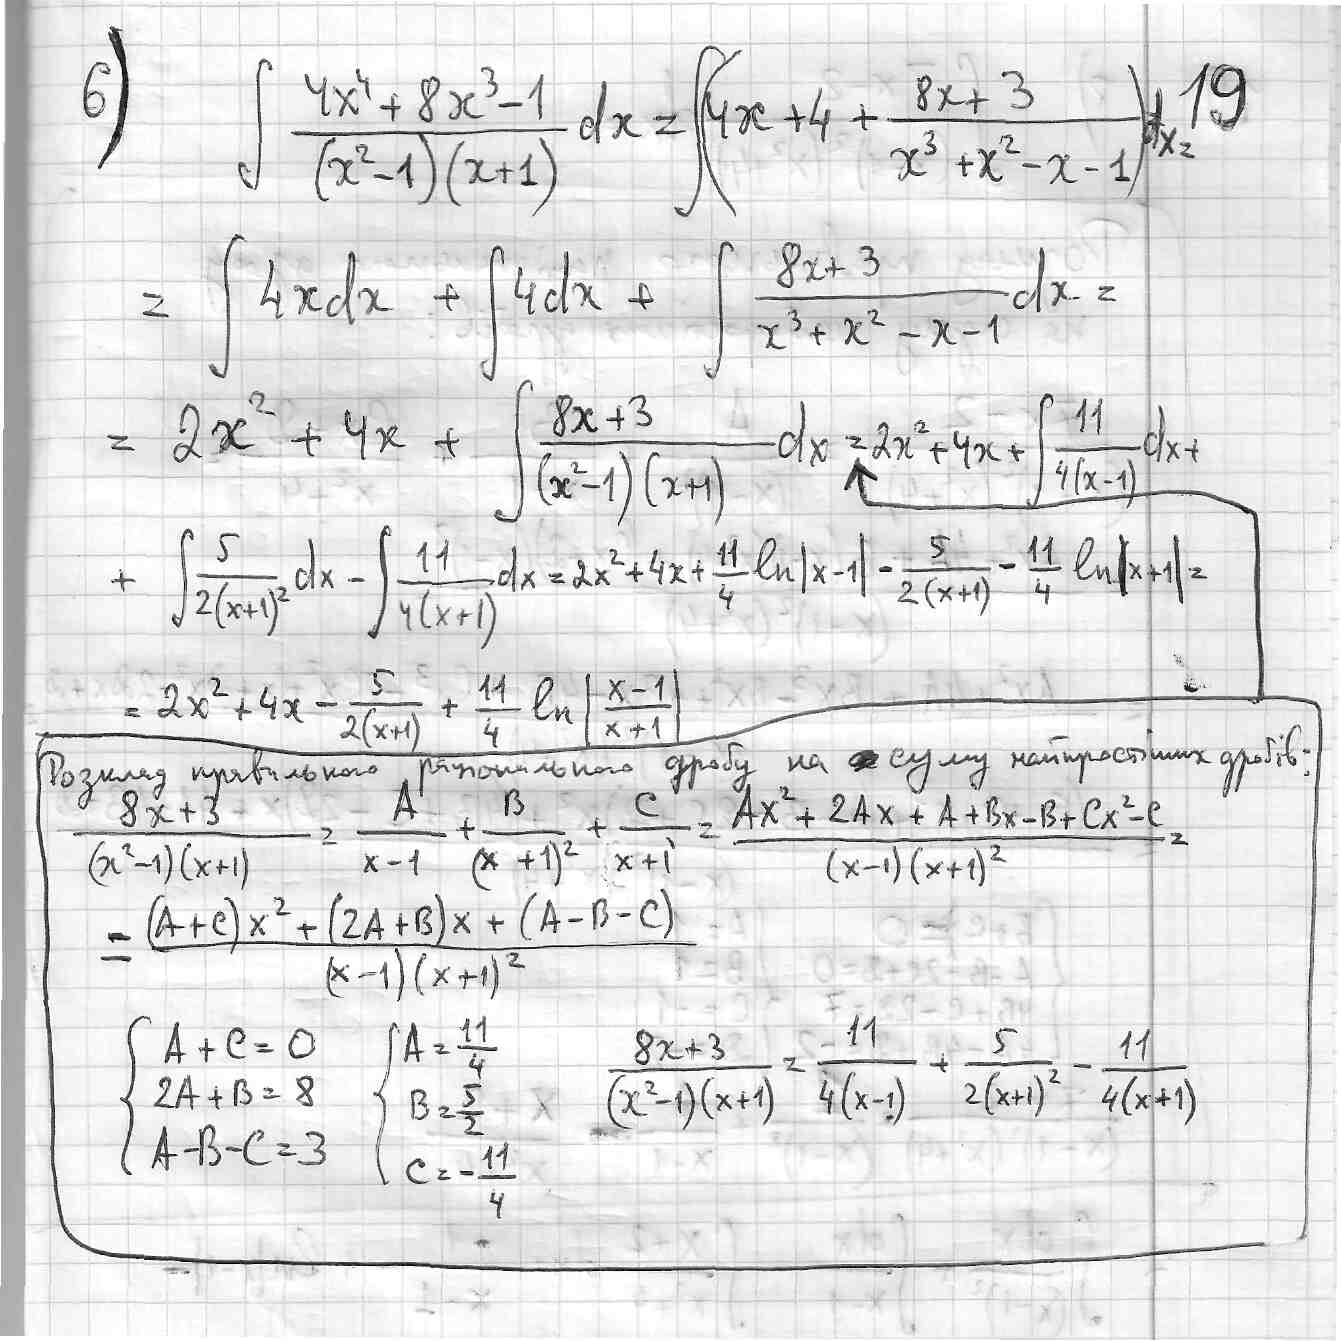 6) ∫ (4x⁴ + 8x³ - 1)/((x² - 1)(x + 1)) dx = ∫(4x + 4 + (8x + 3)/(x³ + x² - x - 1)) dx = 19
= ∫ 4x dx + ∫ 4 dx + ∫ (8x + 3)/(x³ + x² - x - 1) dx =
= 2x² + 4x + ∫ (8x + 3)/((x² - 1)(x + 1)) dx = 2x² + 4x + ∫ 11/(4(x - 1)) dx +
+ ∫ 5/(2(x + 1)²) dx - ∫ 11/(4(x + 1)) dx = 2x² + 4x + 11/4 ln|x - 1| - 5/(2(x + 1)) - 11/4 ln|x + 1| =
= 2x² + 4x - 5/(2(x + 1)) + 11/4 ln|(x - 1)/(x + 1)|
Розклад правильного раціонального дробу на суму найпростіших дробів:
(8x + 3)/((x² - 1)(x + 1)) = A/(x - 1) + B/(x + 1)² + C/(x + 1) = (Ax² + 2Ax + A + Bx - B + Cx² - C)/((x - 1)(x + 1)²) =
= ((A + C)x² + (2A + B)x + (A - B - C))/((x - 1)(x + 1)²)
{ A + C = 0 { A = 11/4 (8x + 3)/((x² - 1)(x + 1)) = 11/(4(x - 1)) + 5/(2(x + 1)²) - 11/(4(x + 1))
2A + B = 8 B = 5/2
A - B - C = 3 C = - 11/4